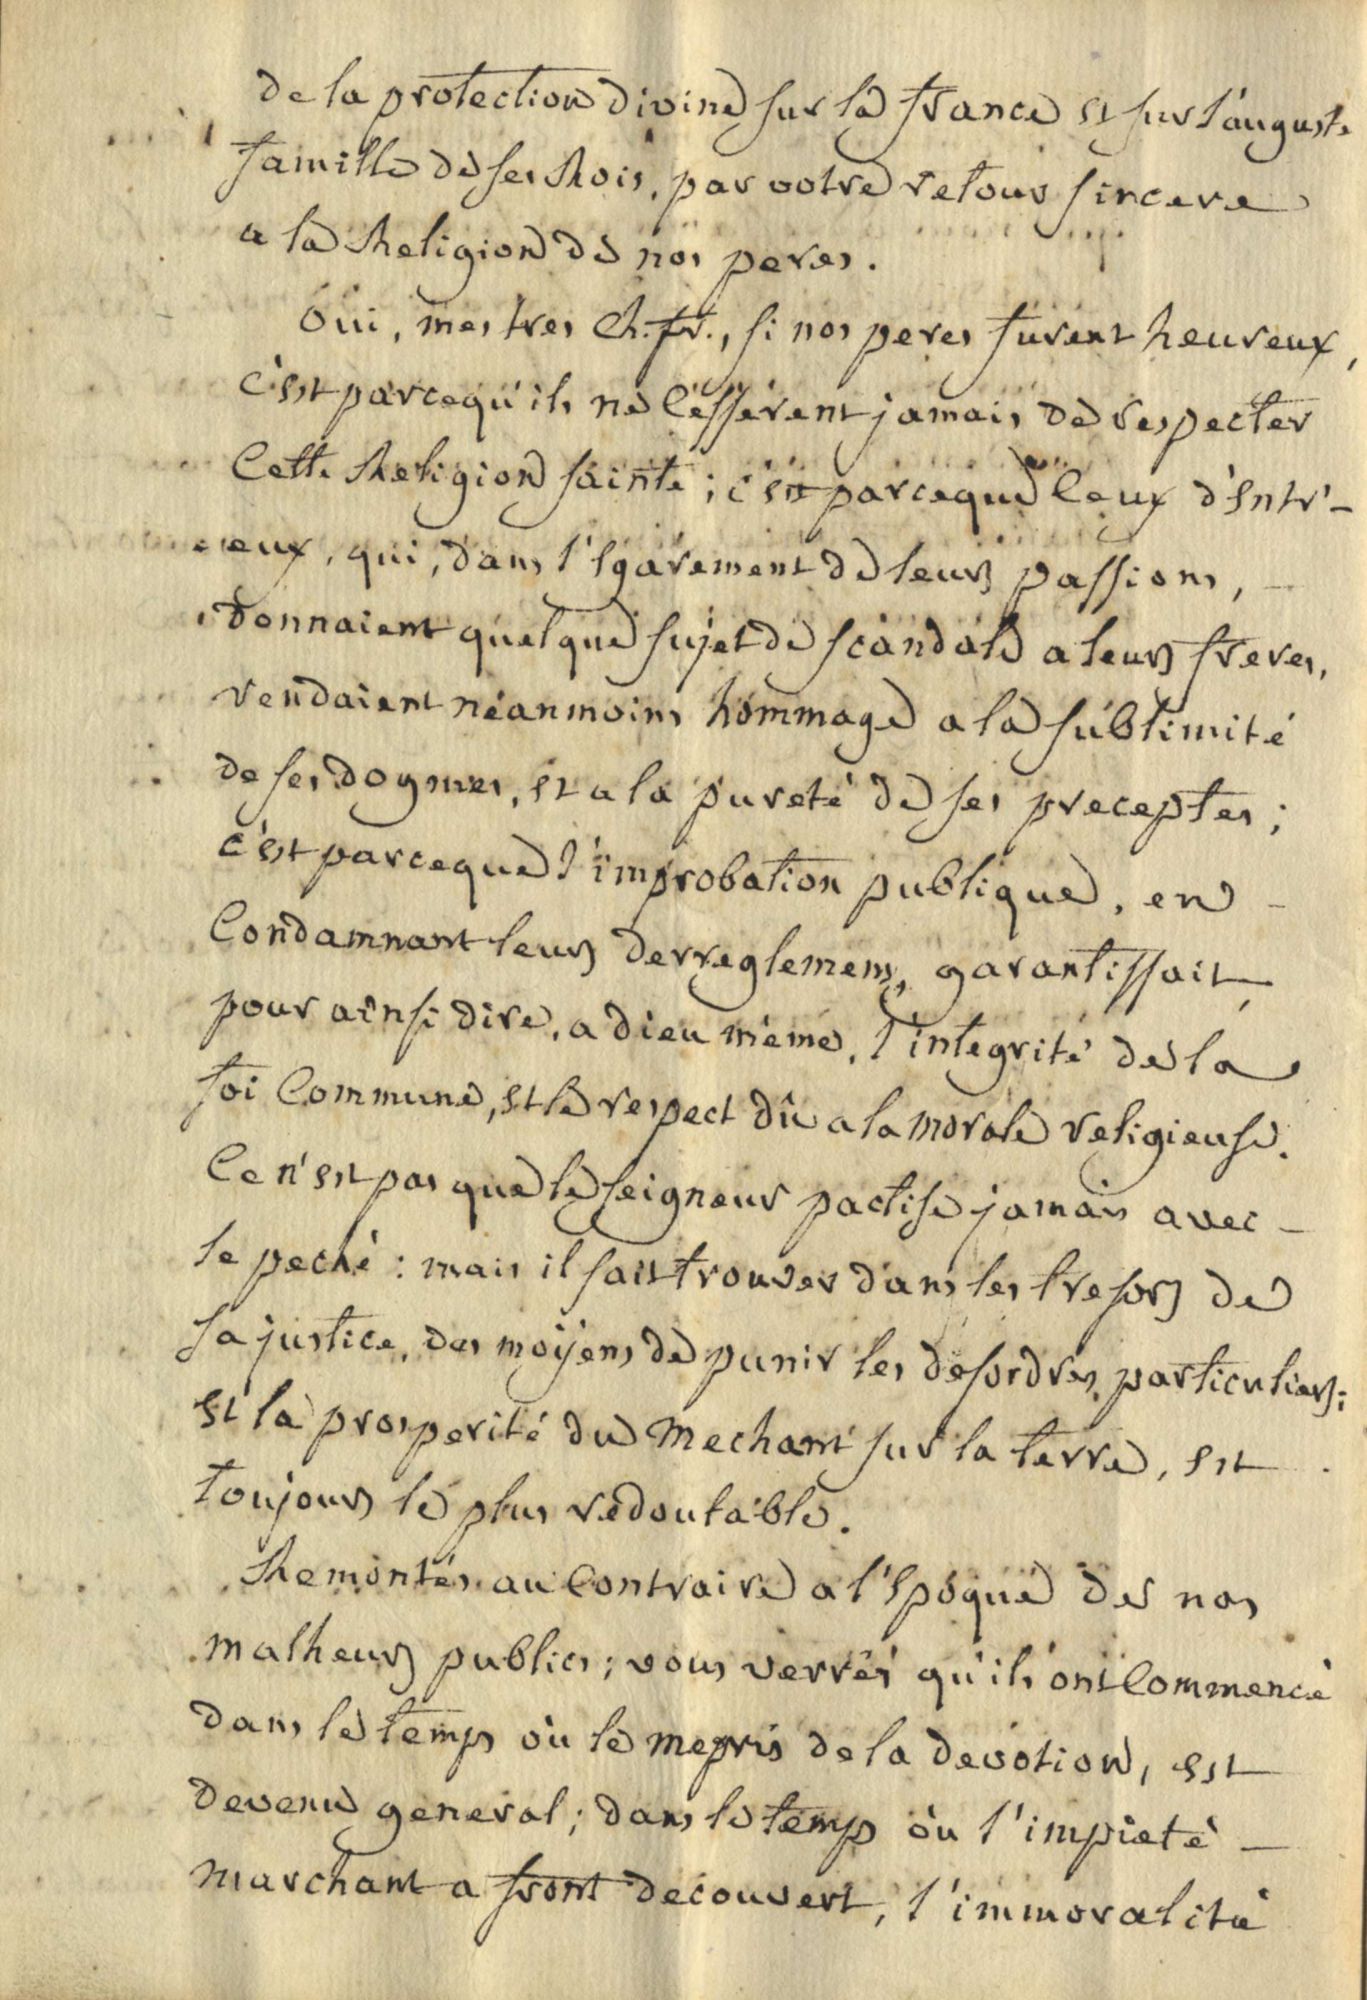 de la protection divine sur la france et sur l'auguste
famille de ses Rois, par votre retour sincere
a la Religion de nos peres.
Oui, mes tres Ch. fr., si nos peres furent heureux,
c'est parcequ'ils ne cessérent jamais de respecter
cette Religion sainte ; c'est parceque ceux d'entr'-
eux, qui, dans l'egarement de leurs passions, -
donnaient quelque sujet de scandale a leurs freres,
rendaient néanmoins hommage a la sublimité
de ses dogmes, et a la pureté de ses preceptes ;
c'est parceque l'improbation publique, en -
condamnant leurs derreglemens, garantissait,
pour ainsi dire, a dieu même, l'integrité de la
foi commune, et le respect dû a la morale religieuse.
Ce n'est pas que le seigneur pactise jamais avec -
le peché : mais il sait trouver dans les tresors de
sa justice, des moÿens de punir les desordres particuliers ;
et la prosperité du mechant sur la terre, est
toujours le plus redoutable.
Remontés au contraire a l'epoque de nos
malheurs publics ; vous verrés qu'ils ont commencé
dans le temps où le mepris de la devotion, est
devenu general ; dans le temps où l'impieté -
marchant a front decouvert, l'immoralité